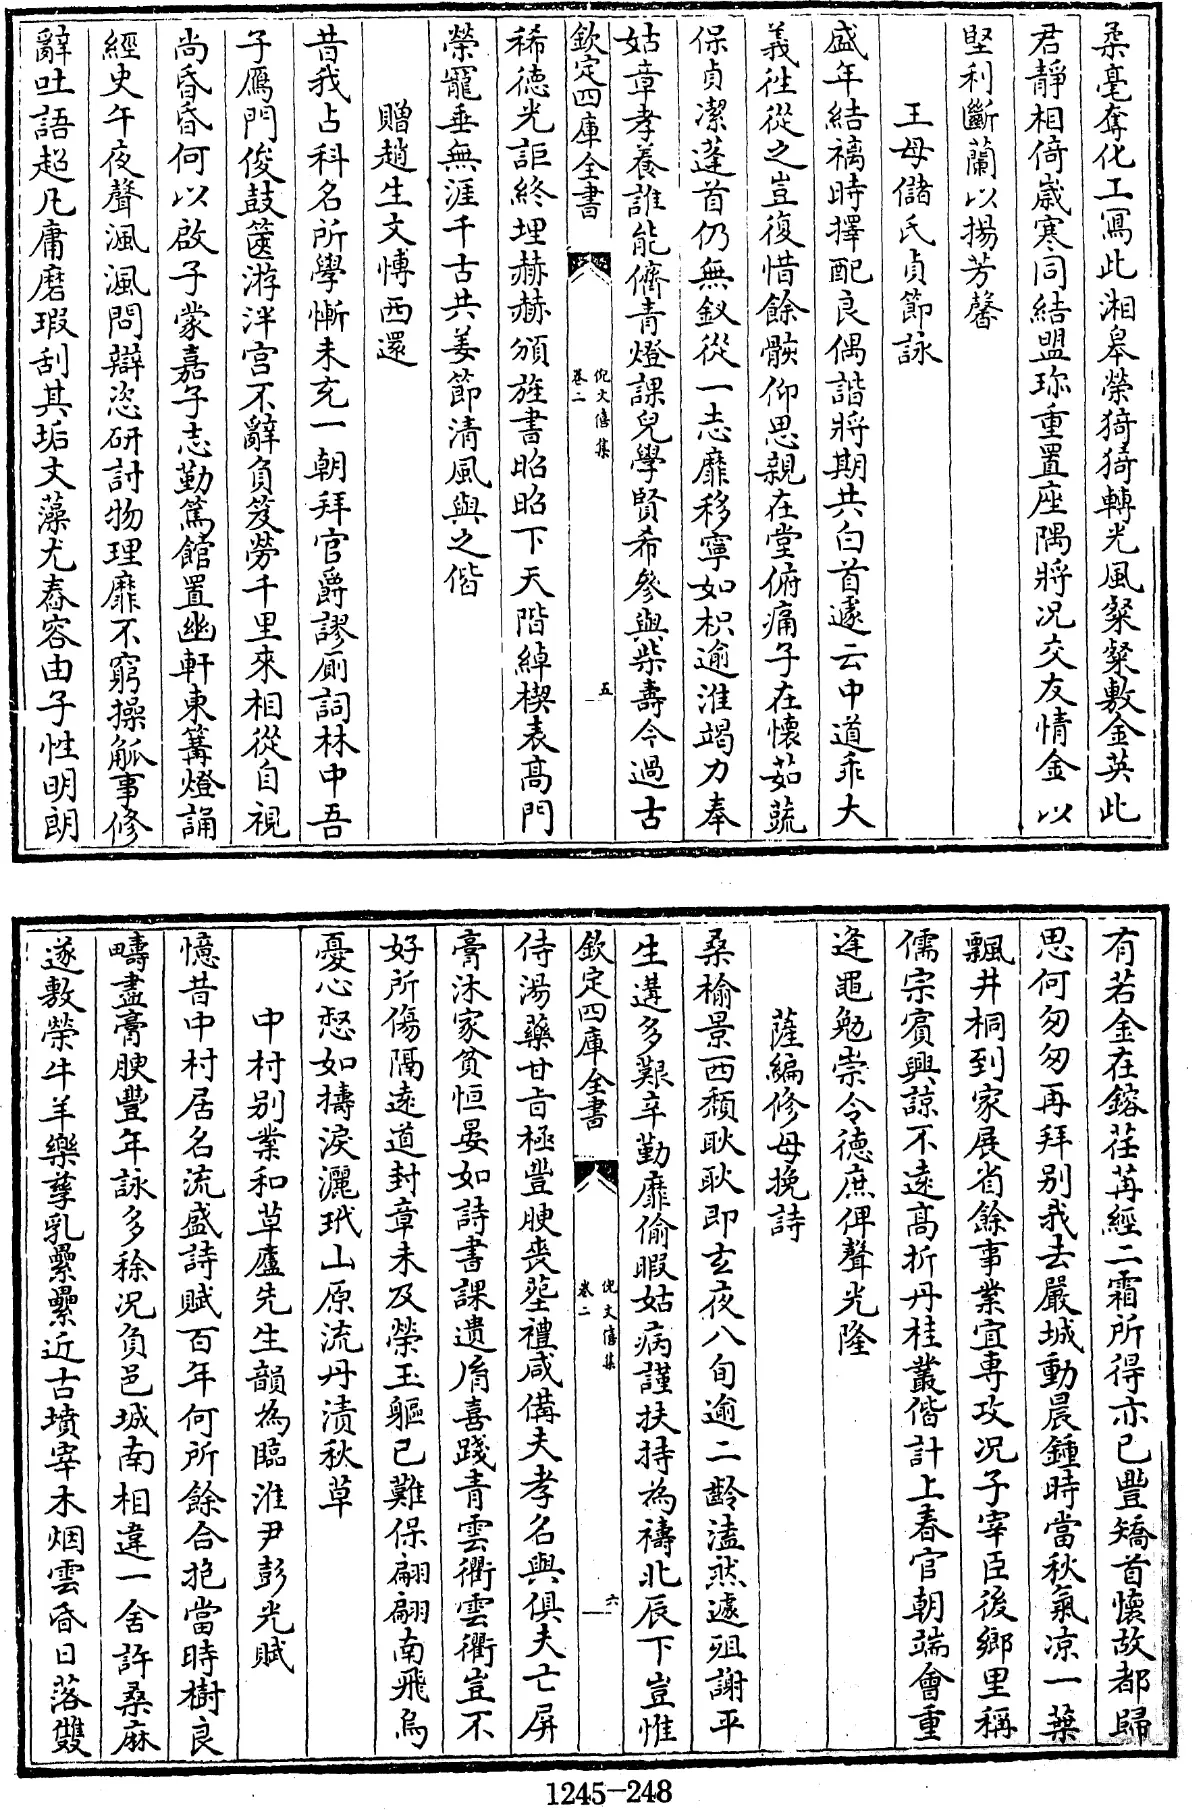 柔毫奪化工寫此湘皋榮猗猗轉光風粲粲敷金英此
君靜相倚歲寒同結盟珎重置座隅將况交友情金以
堅利斷蘭以揚芳馨
王母儲氏貞節詠
盛年結褵時擇配良偶諧將期共白首遽云中道乖大
義往從之豈復惜餘骸仰思親在堂俯痛子在懷茹蔬
保貞潔蓬首仍無釵從一志靡移寧如枳逾淮竭力奉
姑章孝養誰能儕青燈課兒學賢希參與柴壽今過古
欽定四庫全書
倪文僖集
卷二
五
稀德光詎終埋赫赫頒旌書昭昭下天階綽楔表高門
榮寵垂無涯千古共姜節清風與之偕
贈趙生文博西還
昔我占科名所學慚未充一朝拜官爵謬厠詞林中吾
子鴈門俊鼓篋游泮宫不辭負笈勞千里來相從自視
尚昏昏何以啟子蒙嘉子志勤篤館置幽軒東篝燈誦
經史午夜聲渢渢問辯恣研討物理靡不窮操觚事修
辭吐語超凡庸磨瑕刮其垢文藻尤舂容由子性明朗
有若金在鎔荏苒經二霜所得亦已豐矯首懷故都歸
思何匆匆再拜别我去嚴城動晨鍾時當秋氣凉一葉
飄井桐到家展省餘事業宜專攻况子宰臣後鄉里稱
儒宗賓興諒不遠高折丹桂叢偕計上春官朝端會重
逢黽勉崇令德庶俾聲光隆
薩編修母挽詩
桑榆景西頹耿耿即玄夜八旬逾二齡溘然遽殂謝平
生遘多艱辛勤靡偷暇姑病謹扶持為禱北辰下豈惟
欽定四庫全書
倪文僖集
卷二
六
侍湯藥甘旨極豐腴喪塟禮咸備夫孝名與俱夫亡屏
膏沐家貧恒晏如詩書課遺胤喜踐青雲衢雲衢豈不
好所傷隔遠道封章未及榮玉軀已難保翩翩南飛烏
憂心惄如擣淚灑玳山原流丹漬秋草
中村别業和草廬先生韻為臨淮尹彭光賦
憶昔中村居名流盛詩賦百年何所餘合抱當時樹良
疇盡膏腴豐年詠多稌况負邑城南相違一舍許桑麻
遂敷榮牛羊樂孳乳纍纍近古墳宰木烟雲昏日落雙
1245-248